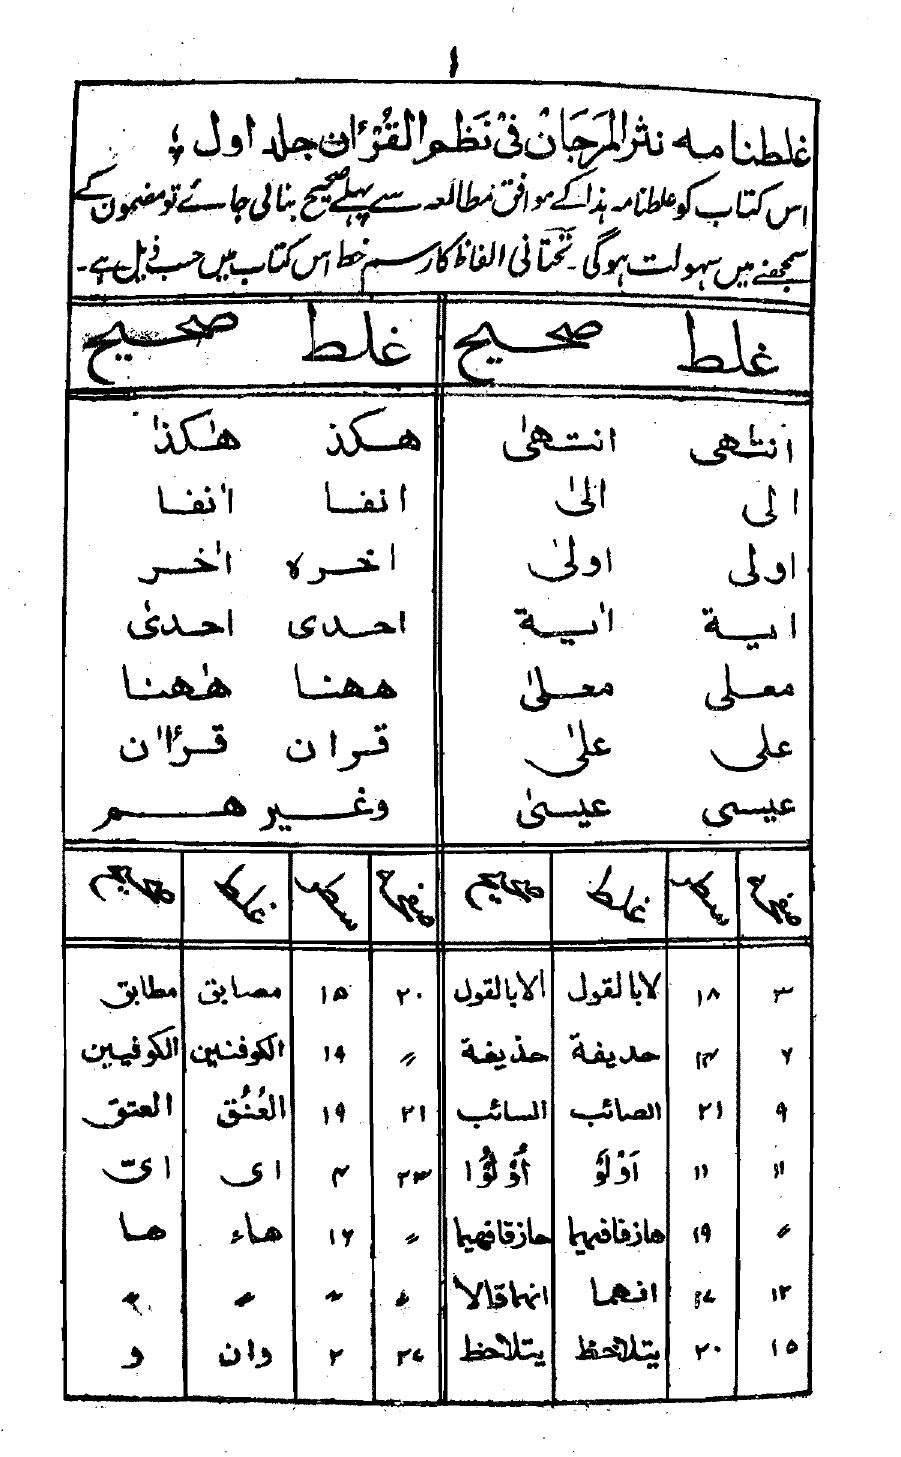 ۱
غلطنامہ نثر المَرجَانْ فِیْ نَظمِ القُرْاٰن جلد اول
اس کتاب کو غلطنامہ ہذا کے موافق مطالعہ سے پہلے صحیح بنالی جائے تو مضمون کے
سمجھنے میں سہولت ہوگی۔ تحتانی الفاظ کا رسم خط اس کتاب میں حسب ذیل ہے۔
غلط صحیح غلط صحیح
انتہی انتہیٰ ھکذ ھٰکذا
الی الیٰ انفا اٰنفا
اولی اولیٰ اخرہ اٰخر
ایة اٰیة احدی احدیٰ
معلی معلیٰ ھھنا ھٰھنا
علی علیٰ قران قراٰن
عیسی عیسیٰ وغیر ھم
صفحہ سطر غلط صحیح صفحہ سطر غلط صحیح
۳ ۱۸ لابالقول الابالقول ۲۰ ۱۵ مصابق مطابق
۷ حدیفة حذیفة 〃 ۱۴ الکوفنین الکوفیین
۹ ۲۱ الصائب السائب ۲۱ ۱۹ العُنُق العتق
۱۱ ۱۱ اَوْلَوُ أُوْلُوْا ۲۳ ۴ ای ایّ
〃 ۱۹ ھازقافھیما حازقافھیما 〃 ۱۶ ھاء ھا
۱۲ انھما انھماقالا 〃 〃 〃 〃
۱۵ ۲۰ یتلاخظ یتلاحظ ۲۷ ۲ وان و